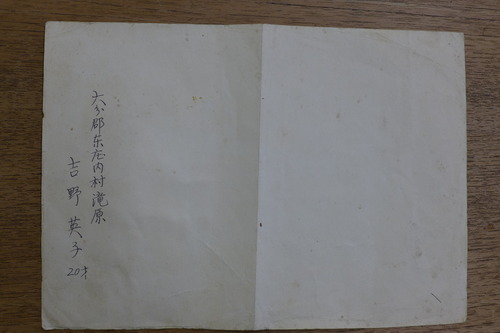 大分郡东庄内村滝原
吉野英子
20才